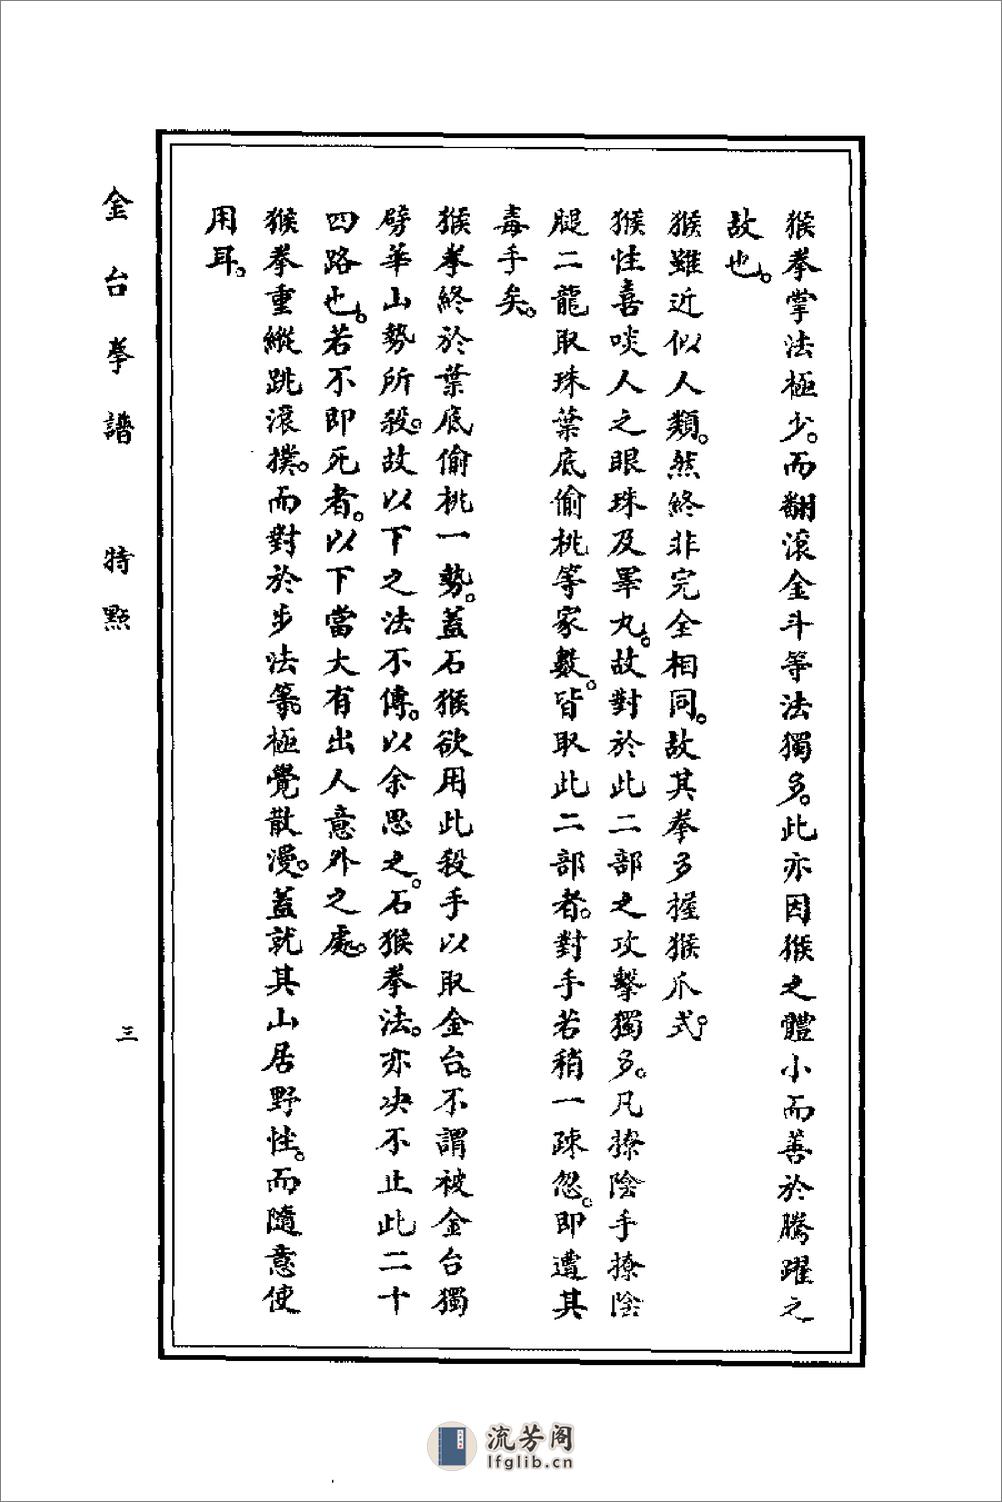 猴拳掌法極少。而翻滾金斗等法獨多。此亦因猴之體小而善於騰躍之
故也。
猴雖近似人類。然終非完全相同。故其拳多握猴爪式。
猴性喜啖人之眼珠及睪丸。故對於此二部之攻擊獨多。凡撩陰手撩陰
腿二龍取珠葉底偷桃等家數。皆取此二部者。對手若稍一疎忽。即遭其
毒手矣。
猴拳終於葉底偷桃一勢。蓋石猴欲用此殺手以取金台。不謂被金台獨
劈華山勢所殺。故以下之法不傳。以余思之。石猴拳法。亦决不止此二十
四路也。若不即死者。以下當大有出人意外之處。
猴拳重縱跳滾撲。而對於步法等。極覺散漫。蓋就其山居野性。而隨意使
用耳。
金台拳譜 特點
三
流芳阁
lfglib.cn